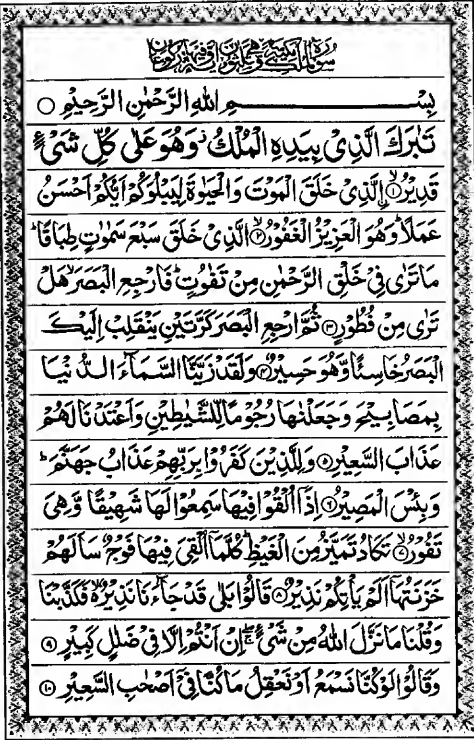 سورة الملك مكية وهي ثلثون اية وفيها ركوعان
بِسْمِ اللّٰهِ الرَّحْمٰنِ الرَّحِيْمِ ○
تَبٰرَكَ الَّذِيْ بِيَدِهِ الْمُلْكُ ز وَهُوَ عَلٰى كُلِّ شَيْءٍ
قَدِيْرُ ۨ ﴿۱﴾ الَّذِيْ خَلَقَ الْمَوْتَ وَالْحَيٰوةَ لِيَبْلُوَكُمْ اَيُّكُمْ اَحْسَنُ
عَمَلًا ؕ وَهُوَ الْعَزِيْزُ الْغَفُوْرُ ﴿۲﴾ الَّذِيْ خَلَقَ سَبْعَ سَمٰوٰتٍ طِبَاقًا ؕ
مَا تَرٰى فِيْ خَلْقِ الرَّحْمٰنِ مِنْ تَفٰوُتٍ ؕ فَارْجِعِ الْبَصَرَ هَلْ
تَرٰى مِنْ فُطُوْرٍ ﴿۳﴾ ثُمَّ ارْجِعِ الْبَصَرَ كَرَّتَيْنِ يَنْقَلِبْ اِلَيْكَ
الْبَصَرُ خَاسِئًا وَّهُوَ حَسِيْرٌ ﴿۴﴾ وَلَقَدْ زَيَّنَّا السَّمَآءَ الدُّنْيَا
بِمَصَابِيْحَ وَجَعَلْنٰهَا رُجُوْمًا لِّلشَّيٰطِيْنِ وَاَعْتَدْنَا لَهُمْ
عَذَابَ السَّعِيْرِ ﴿۵﴾ وَلِلَّذِيْنَ كَفَرُوْا بِرَبِّهِمْ عَذَابُ جَهَنَّمَ ؕ
وَبِئْسَ الْمَصِيْرُ ﴿۶﴾ اِذَاۤ اُلْقُوْا فِيْهَا سَمِعُوْا لَهَا شَهِيْقًا وَّهِيَ
تَفُوْرُ ﴿۷﴾ تَكَادُ تَمَيَّزُ مِنَ الْغَيْظِ ؕ كُلَّمَاۤ اُلْقِيَ فِيْهَا فَوْجٌ سَاَلَهُمْ
خَزَنَتُهَاۤ اَلَمْ يَاْتِكُمْ نَذِيْرٌ ﴿۸﴾ قَالُوْا بَلٰى قَدْ جَآءَنَا نَذِيْرٌ ۙ فَكَذَّبْنَا
وَقُلْنَا مَا نَزَّلَ اللّٰهُ مِنْ شَيْءٍ ۚ اِنْ اَنْتُمْ اِلَّا فِيْ ضَلٰلٍ كَبِيْرٍ ﴿۹﴾
وَقَالُوْا لَوْ كُنَّا نَسْمَعُ اَوْ نَعْقِلُ مَا كُنَّا فِيْۤ اَصْحٰبِ السَّعِيْرِ ﴿۱۰﴾